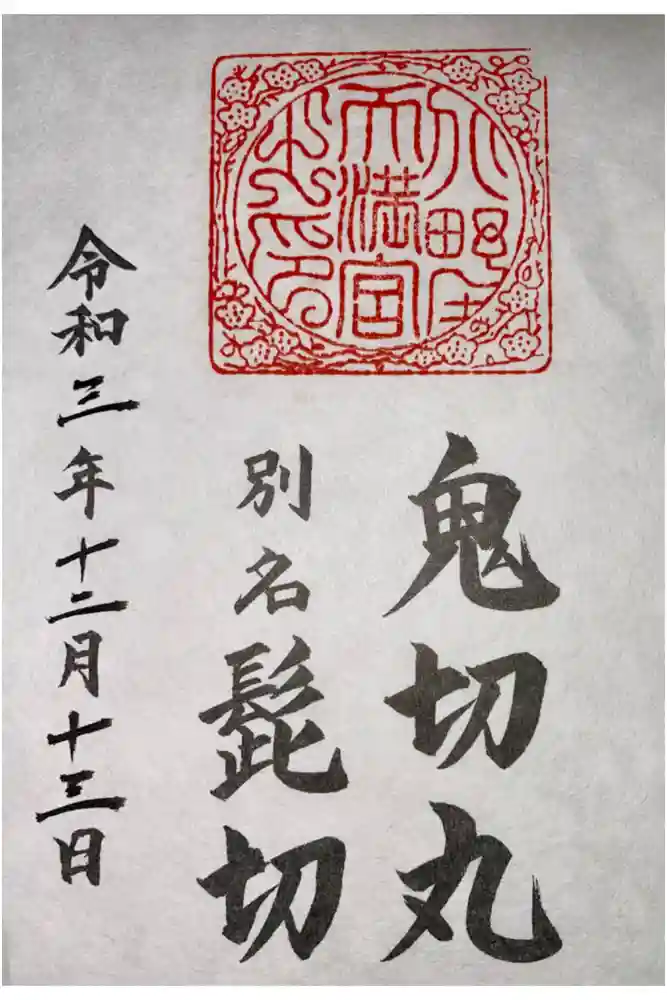 北野
天満宮
之印
鬼切丸
別名髭切
令和三年十二月十三日